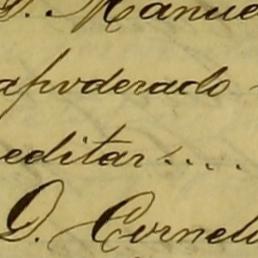 D. Manue
apoderado
editar....
D. Corneli